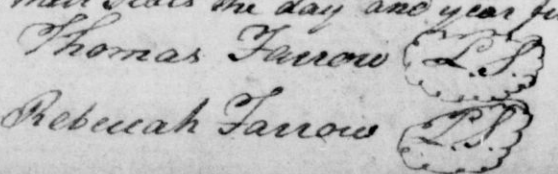 their Seals the day and year fi
Thomas Farrow L.S.
Rebeccah Farrow L.S.